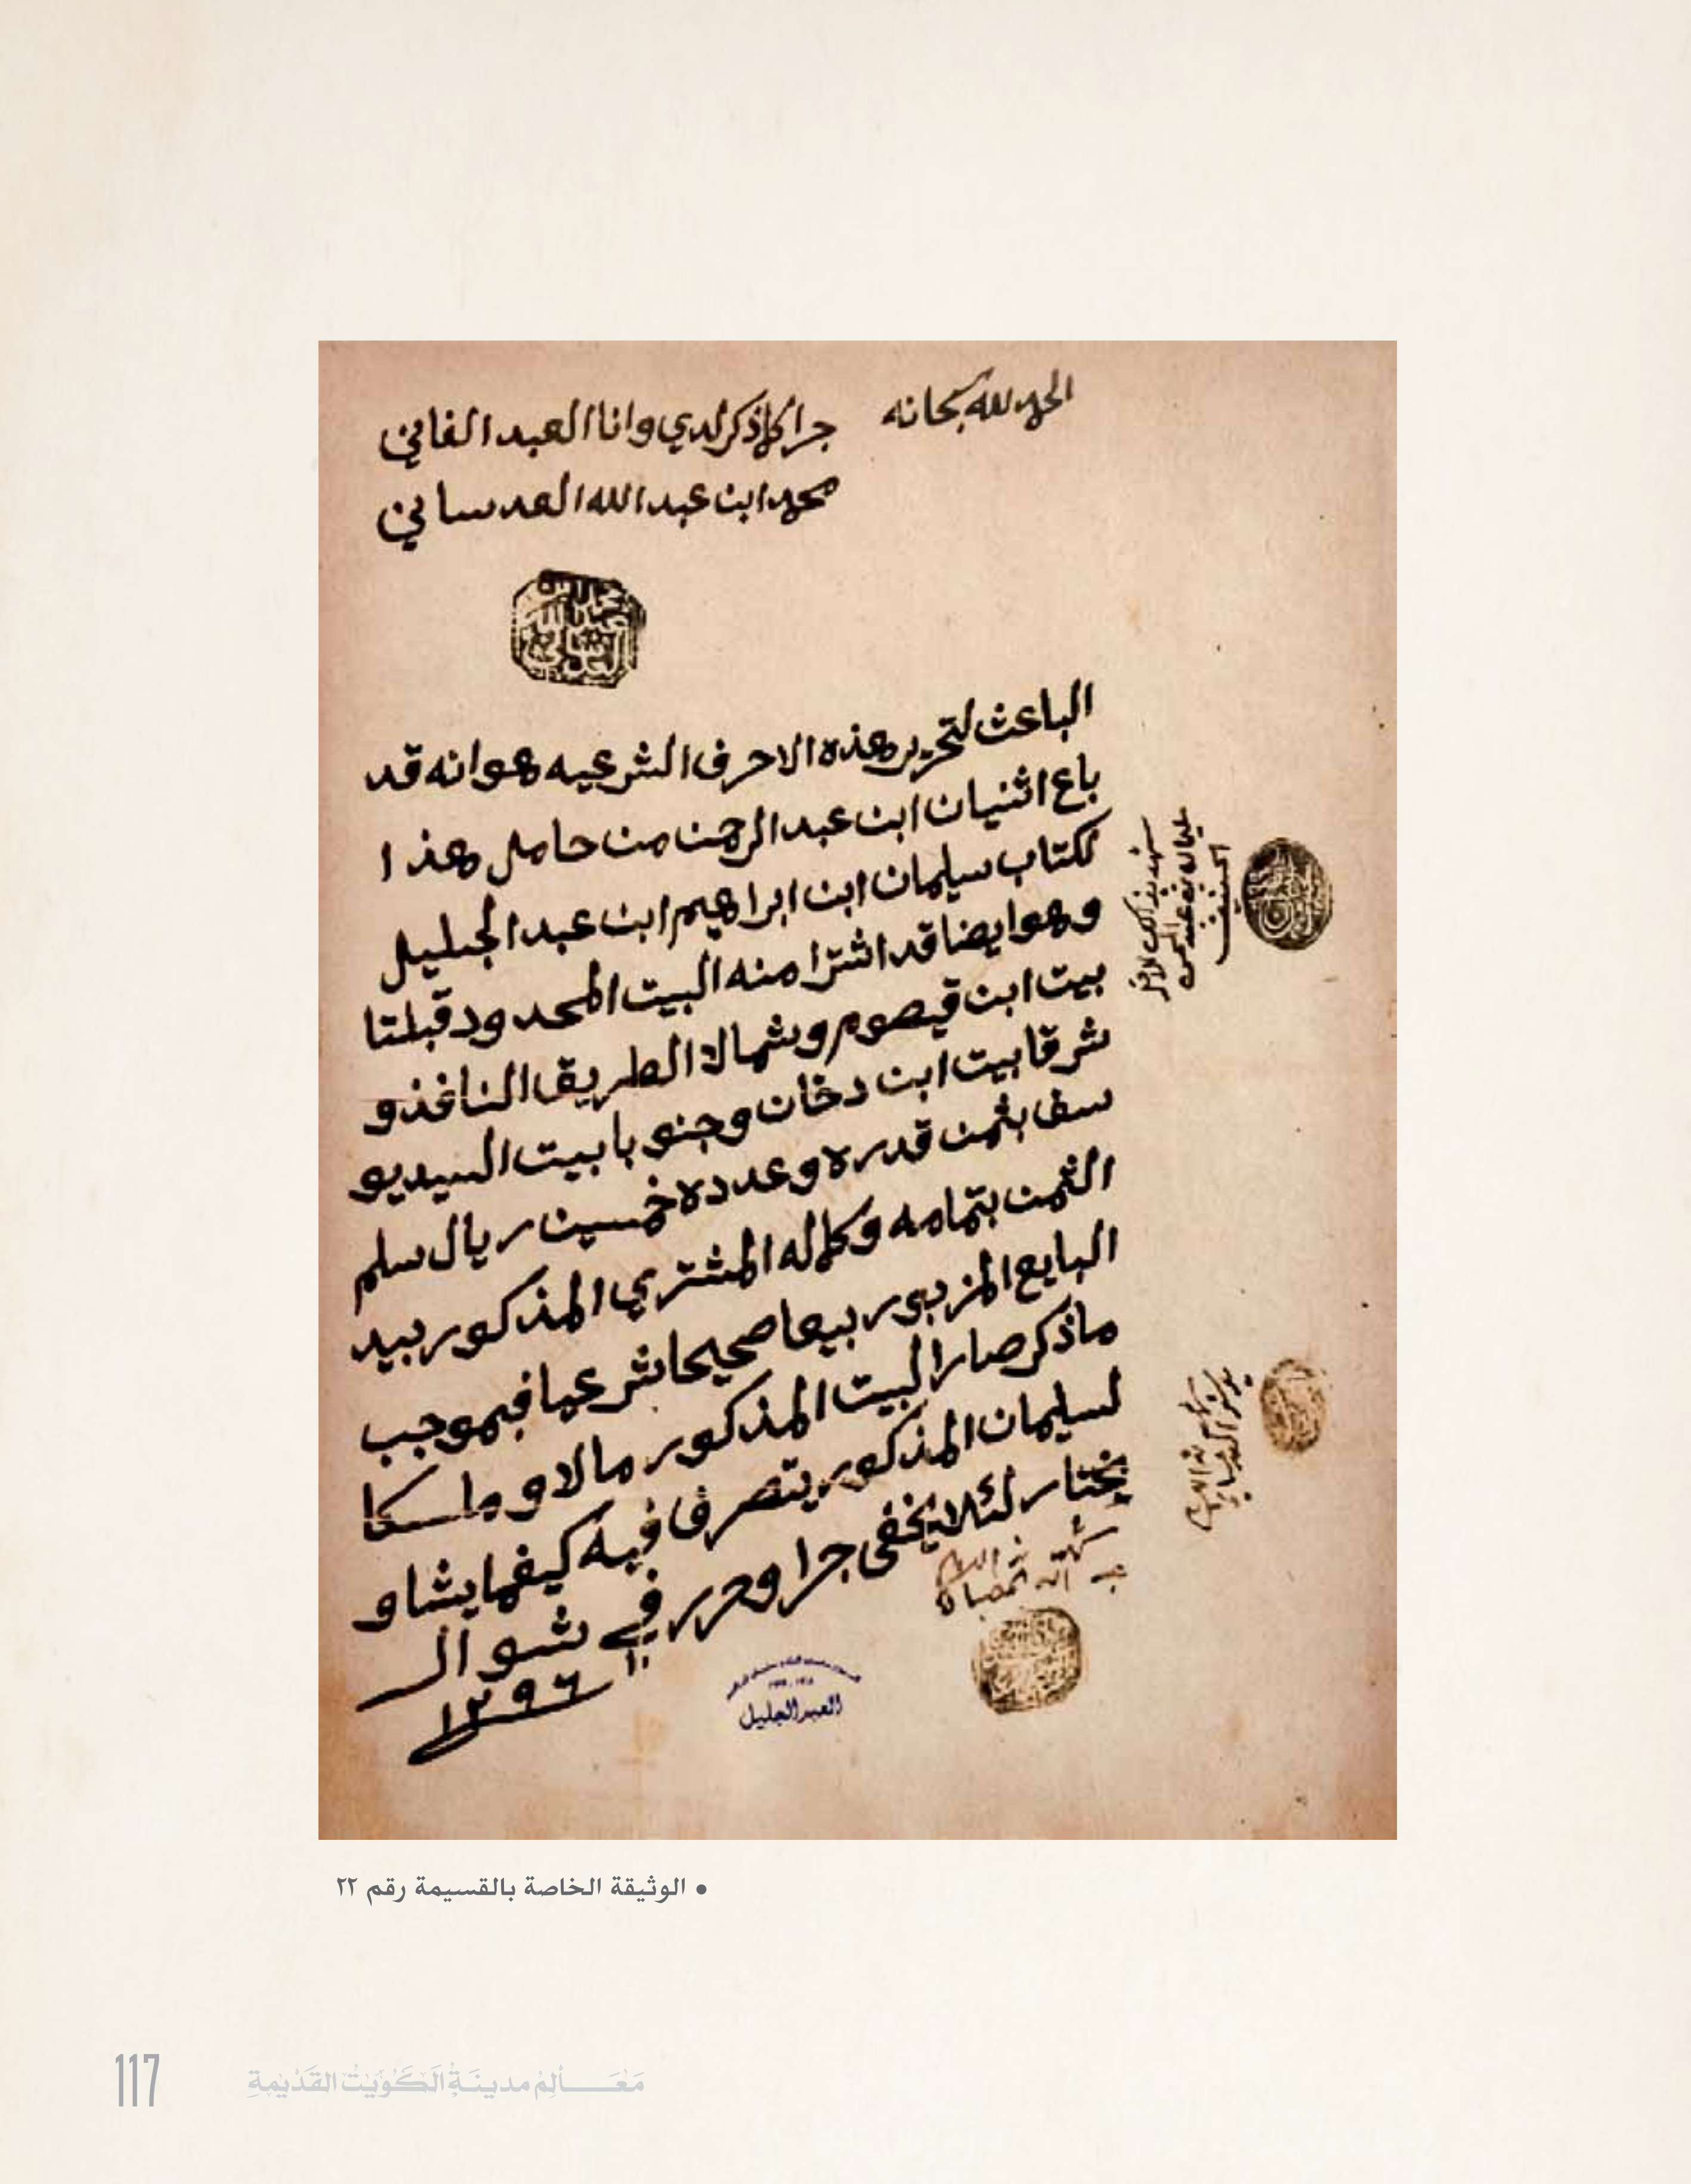 الحمد لله سبحانه
جرا كلما ذكر لدي وانا العبد الفاني
محمد ابن عبد الله العدساني
الباعث لتحرير هذه الاحرف الشرعيه هو انه قد
باع اثنيان ابن عبد الرحمن من حامل هذا ا
لكتاب سليمان ابن ابراهيم ابن عبد الجليل
وهو ايضا قد اشترا منه البيت المحدود قبلتا
بيت ابن قيصوم وشمالا الطريق النافذ و
شرقا بيت ابن دخان وجنوبا بيت السيد يو
سف بثمن قدره وعدده خمسين ريال سلم
الثمن بتمامه وكماله المشتري المذكور بيد
البايع المزبور بيعا صحيحا شرعيا فبموجب
ما ذكر صار البيت المذكور مالا وملكا
لسليمان المذكور يتصرف فيه كيفما يشا و
يختار لئلا يخفى جرا وحرر في شوال
١٢٩٦
العبد الجليل
• الوثيقة الخاصة بالقسيمة رقم ٢٢
117
مَعَالِمُ مدينَةِ الكُوَيْت القَدْيمةِ